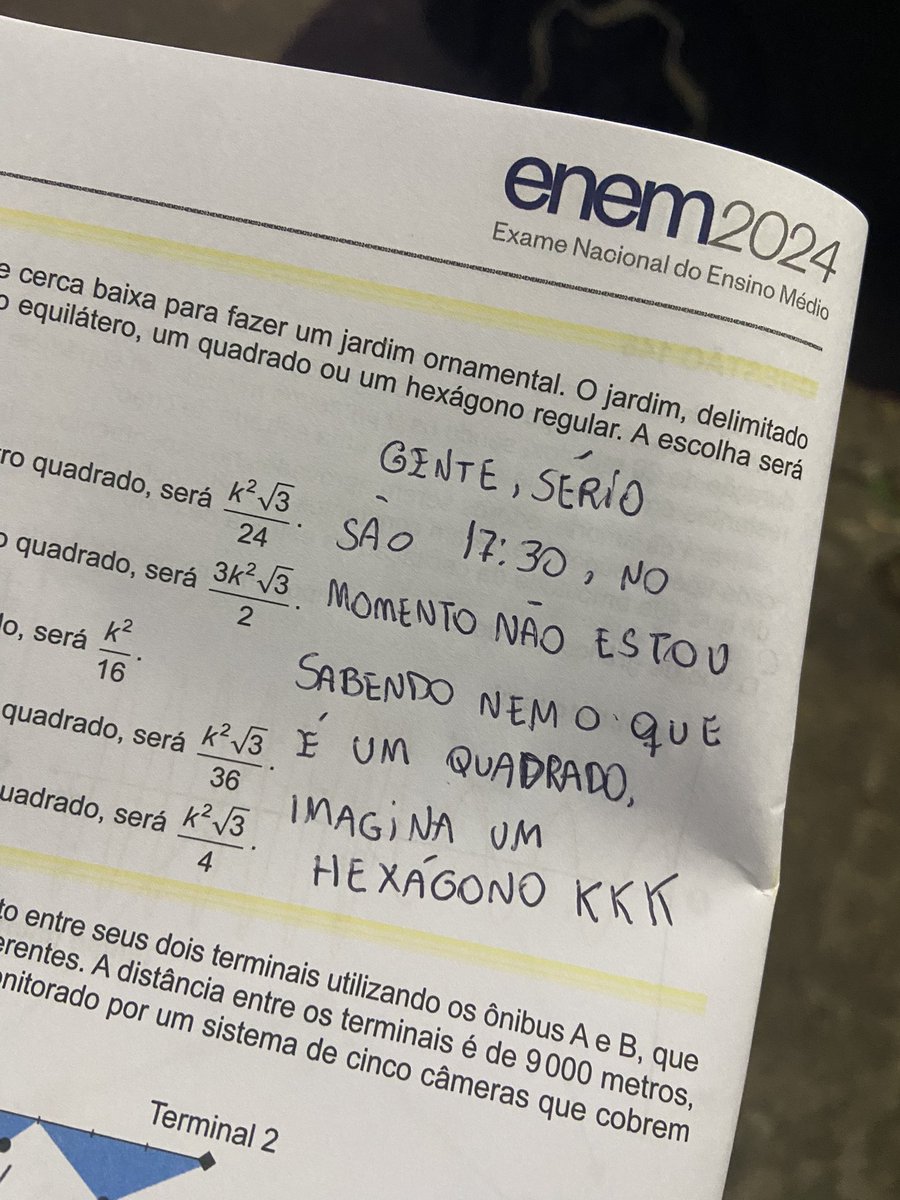 enem2024
Exame Nacional do Ensino Médio
e cerca baixa para fazer um jardim ornamental. O jardim, delimitado
o equilátero, um quadrado ou um hexágono regular. A escolha será
ro quadrado, será k²√3/24.
o quadrado, será 3k²√3/2.
do, será k²/16.
quadrado, será k²√3/36.
uadrado, será k²√3/4.
GENTE, SÉRIO
SÃO 17:30, NO
MOMENTO NÃO ESTOU
SABENDO NEM O QUE
É UM QUADRADO,
IMAGINA UM
HEXÁGONO KKK
to entre seus dois terminais utilizando os ônibus A e B, que
erentes. A distância entre os terminais é de 9 000 metros,
onitorado por um sistema de cinco câmeras que cobrem
Terminal 2